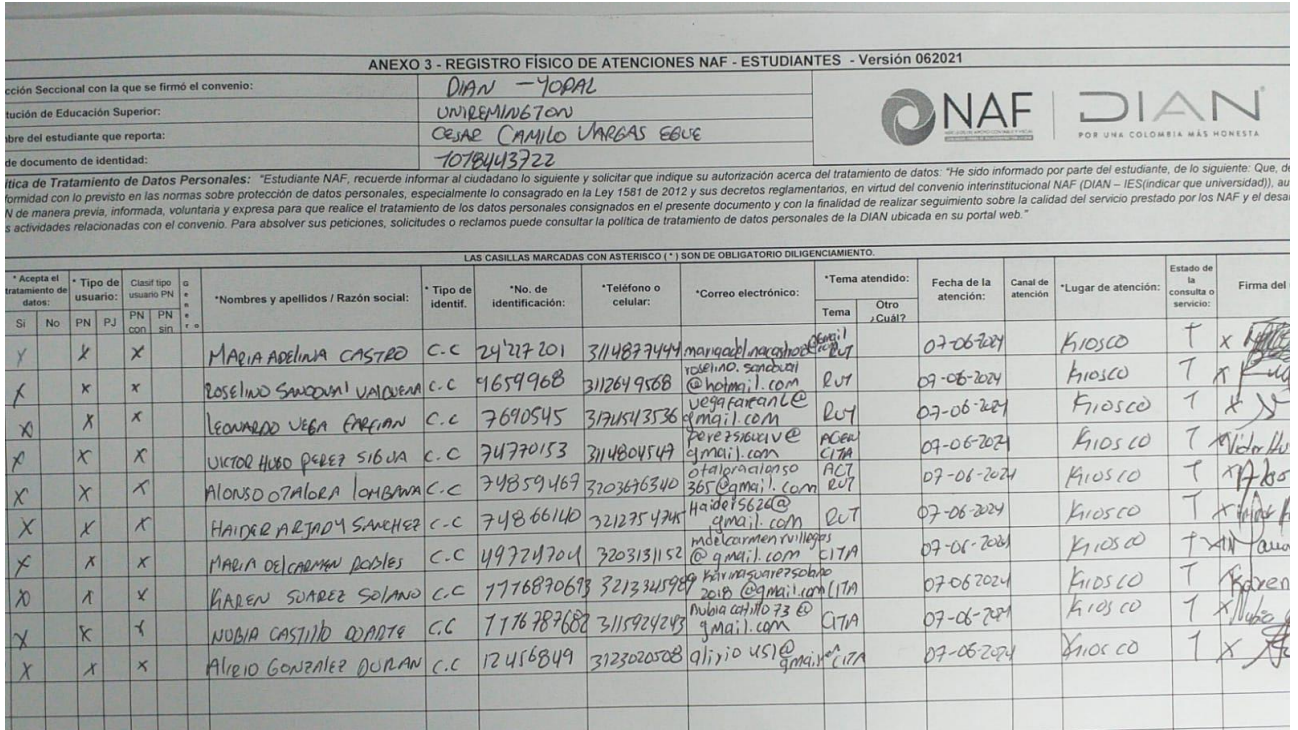 ANEXO 3 - REGISTRO FÍSICO DE ATENCIONES NAF - ESTUDIANTES - Versión 062021
cción Seccional con la que se firmó el convenio: DIAN - YOPAL
tución de Educación Superior: UNIREMINGTON
bre del estudiante que reporta: CESAR CAMILO VARGAS EGUE
de documento de identidad: 1018443722
NAF DIAN
POR UNA COLOMBIA MÁS HONESTA
ítica de Tratamiento de Datos Personales: "Estudiante NAF, recuerde informar al ciudadano lo siguiente y solicitar que indique su autorización acerca del tratamiento de datos: "He sido informado por parte del estudiante, de lo siguiente: Que, de
formidad con lo previsto en las normas sobre protección de datos personales, especialmente lo consagrado en la Ley 1581 de 2012 y sus decretos reglamentarios, en virtud del convenio interinstitucional NAF (DIAN – IES(indicar que universidad)), au
N de manera previa, informada, voluntaria y expresa para que realice el tratamiento de los datos personales consignados en el presente documento y con la finalidad de realizar seguimiento sobre la calidad del servicio prestado por los NAF y el desar
s actividades relacionadas con el convenio. Para absolver sus peticiones, solicitudes o reclamos puede consultar la política de tratamiento de datos personales de la DIAN ubicada en su portal web."
LAS CASILLAS MARCADAS CON ASTERISCO (*) SON DE OBLIGATORIO DILIGENCIAMIENTO.
*Acepta el tratamiento de datos: *Tipo de usuario: Clasif tipo usuario PN Genero *Nombres y apellidos / Razón social: *Tipo de identif. *No. de identificación: *Teléfono o celular: *Correo electrónico: *Tema atendido: Fecha de la atención: Canal de atención *Lugar de atención: Estado de la consulta o servicio: Firma del
Si No PN PJ PN con PN sin Tema Otro ¿Cuál?
X X X MARIA ADELINA CASTRO C.C 24'227 201 3114877444 RUT 07-06-2024 Kiosco T X
X X X ROSELINO SANDOVAL C.C 9659968 3112649568 roselino.sandoval@hotmail.com RUT 07-06-2024 Kiosco T X
X X X LEONARDO VEGA C.C 7690545 31741543536 gmail.com RUT 07-06-2024 Kiosco T X
X X X VICTOR HUGO PEREZ SIGUA C.C 74770153 3114804547 gmail.com CITA 07-06-2024 Kiosco T X Victor Hu
X X X ALONSO OTALORA C.C 74859469 3203676340 otaloraalonso365@gmail.com ACT RUT 07-06-2024 Kiosco T X
X X X HAIDER ARJADY SANCHEZ C.C 74866140 Haider5626@gmail.com RUT 07-06-2024 Kiosco T X
X X X MARIA DEL CARMEN ROBLES C.C 49724704 3203131152 mdelcarmenrvillegas@gmail.com CITA 07-06-2024 Kiosco T X
X X X KAREN SUAREZ SOLANO C.C 2018@gmail.com CITA 07-06 2024 Kiosco T Karen
X X X NUBIA CASTILLO DUARTE C.C 1116787682 3115924243 gmail.com CITA 07-06-2024 Kiosco T X Nubia
X X X ALIRIO GONZALEZ DURAN C.C 12456849 3123020508 CITA 07-06-2024 Kiosco T X